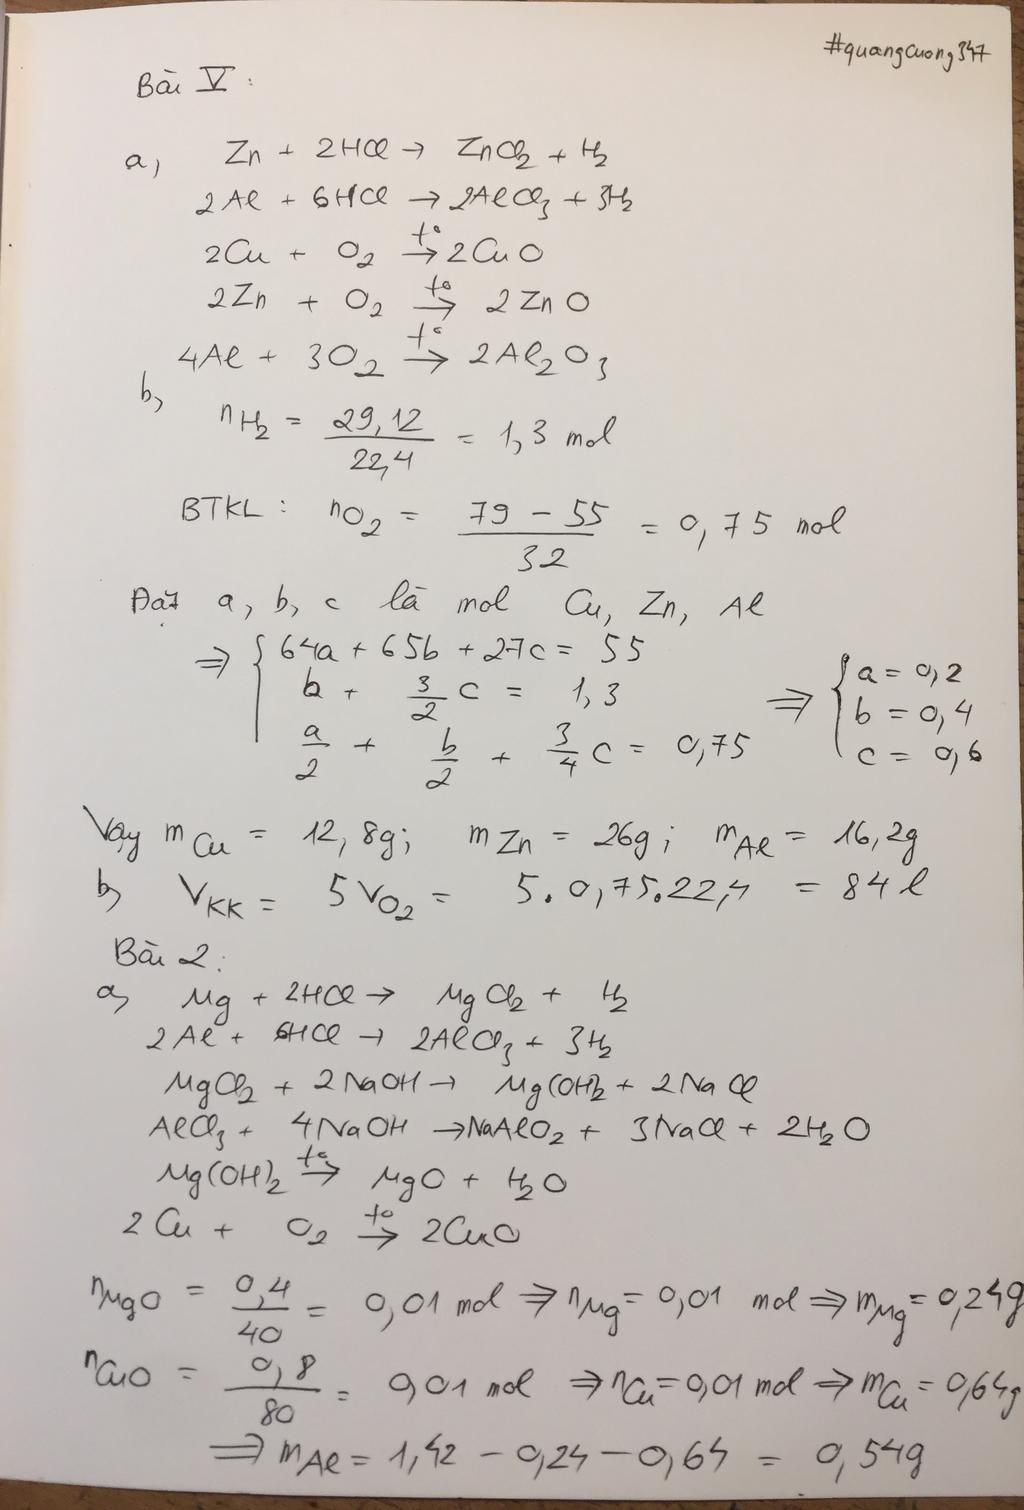 #quangcuong347
Bài V:
a, Zn + 2HCl → ZnCl₂ + H₂
2Al + 6HCl → 2AlCl₃ + 3H₂
2Cu + O₂ →(t°) 2CuO
2Zn + O₂ →(t°) 2ZnO
4Al + 3O₂ →(t°) 2Al₂O₃
b, nH₂ = 29,12/22,4 = 1,3 mol
BTKL: nO₂ = (79 - 55)/32 = 0,75 mol
Đặt a, b, c là mol Cu, Zn, Al
⇒ { 64a + 65b + 27c = 55
b + 3/2 c = 1,3 ⇒ { a = 0,2
a/2 + b/2 + 3/4 c = 0,75 b = 0,4
c = 0,6
Vậy mCu = 12,8g; mZn = 26g; mAl = 16,2g
b, VKK = 5VO₂ = 5.0,75.22,4 = 84 l
Bài 2:
a, Mg + 2HCl → MgCl₂ + H₂
2Al + 6HCl → 2AlCl₃ + 3H₂
MgCl₂ + 2NaOH → Mg(OH)₂ + 2NaCl
AlCl₃ + 4NaOH → NaAlO₂ + 3NaCl + 2H₂O
Mg(OH)₂ →(t°) MgO + H₂O
2Cu + O₂ →(t°) 2CuO
nMgO = 0,4/40 = 0,01 mol ⇒ nMg = 0,01 mol ⇒ mMg = 0,24g
nCuO = 0,8/80 = 0,01 mol ⇒ nCu = 0,01 mol ⇒ mCu = 0,64g
⇒ mAl = 1,42 - 0,24 - 0,64 = 0,54g